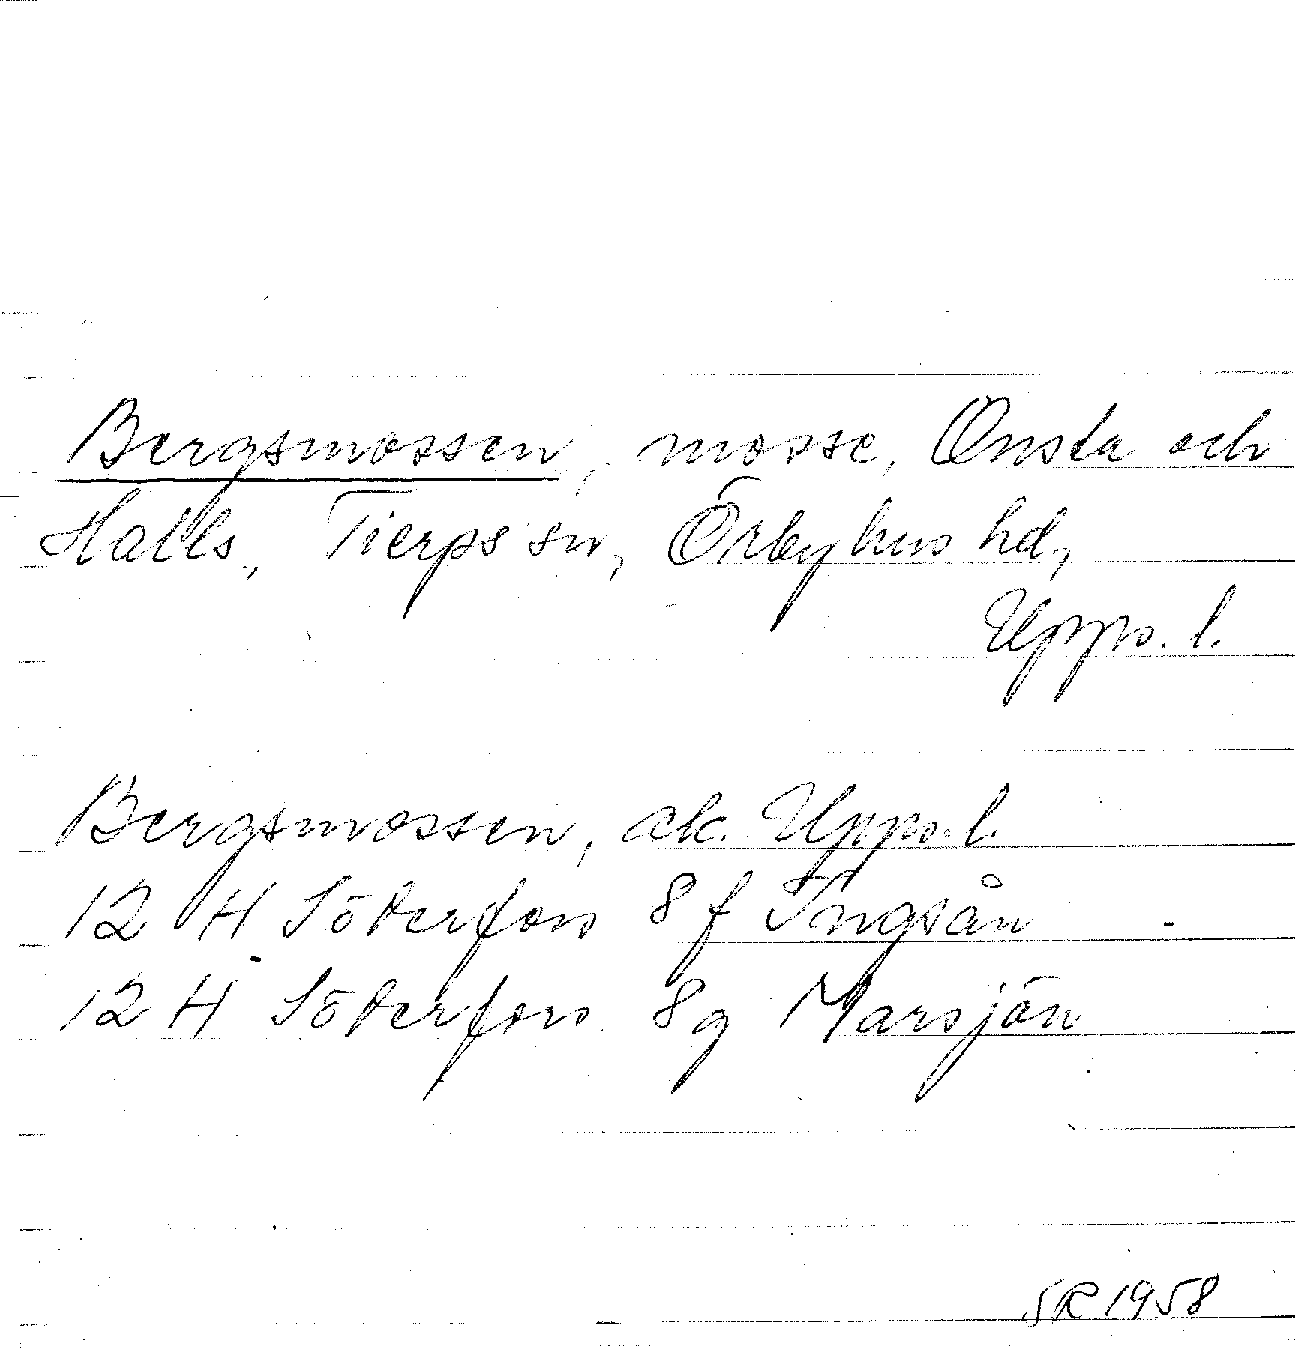 Bergsmossen, mosse, Onsta och
Halls, Tierps sn, Örbyhus hd,
Upps. l.
Bergsmossen, ek. Upps. l.
12 H Söderfors 8 f Ängsån
12 H Söderfors 8g Marsjön
SR 1958